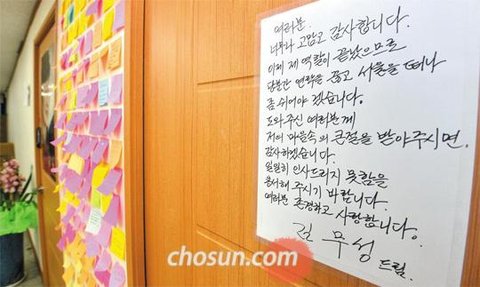 여러분.
너무나 고맙고 감사합니다.
이제 제 역할이 끝났으므로
당분간 연락을 끊고 서울을 떠나
좀 쉬어야 겠습니다.
도와주신 여러분께
저의 마음속의 큰절을 받아주시면.
감사하겠습니다.
일일히 인사드리지 못함을
용서해 주시기 바랍니다.
여러분 존경하고 사랑합니다.
무성
드림.
chosun.com